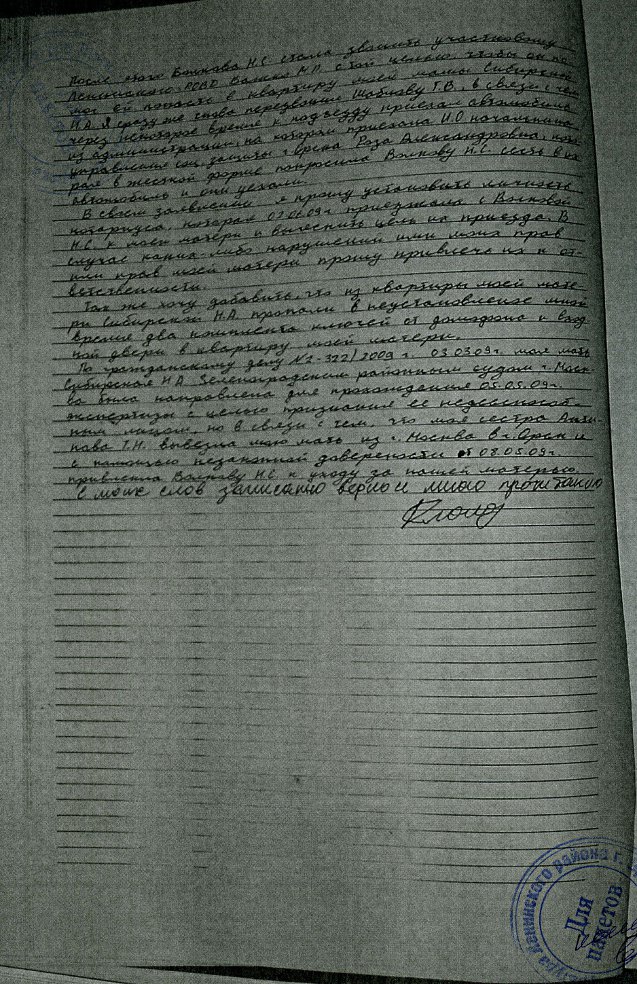 После этого Волкова Н.С. стала звонить участковому
Ленинского РОВД с той целью, чтобы он по
мог ей попасть в квартиру моей мамы Сибирской
Н.А. Я сразу же снова перезвонила Т.В., в связи с чем
через некоторое время к подъезду приехал автомобиль
из администрации, на котором приехала И.О начальника
управления соц. защиты г. Орска Роза Александровна, кото
рая в жесткой форме попросила Волкову Н.С. сесть в их
автомобиль и они уехали.
В своем заявлении я прошу установить личность
нотариуса, которая 03.06.09г. приезжала с Волковой
Н.С. к моей матери и выяснить цель их приезда. В
случае каких-либо нарушений ими моих прав
или прав моей матери прошу привлечь их к от-
ветственности.
Так же хочу добавить, что из квартиры моей мате-
ри Сибирской Н.А. пропали в неустановленое мной
время два комплекта ключей от домофона и вход
ной двери в квартиру моей матери.
По гражданскому делу №2-322/2009 г. 03.03.09г. моя мать
Сибирская Н.А. Зеленоградским районным судом г. Моск-
ва была направлена для прохождения 05.05.09г.
экспертизы с целью признания ее недееспособ-
ным лицом, но в связи с тем, что моя сестра
Т.Н. вывезла мою мать из г. Москва в г. Орск и
с помощью незаконной доверености от 08.05.09г.
привлекла Волкову Н.С. к уходу за нашей матерью.
С моих слов записано верно и мною прочитано
Ленинского района г.
Для
пакетов